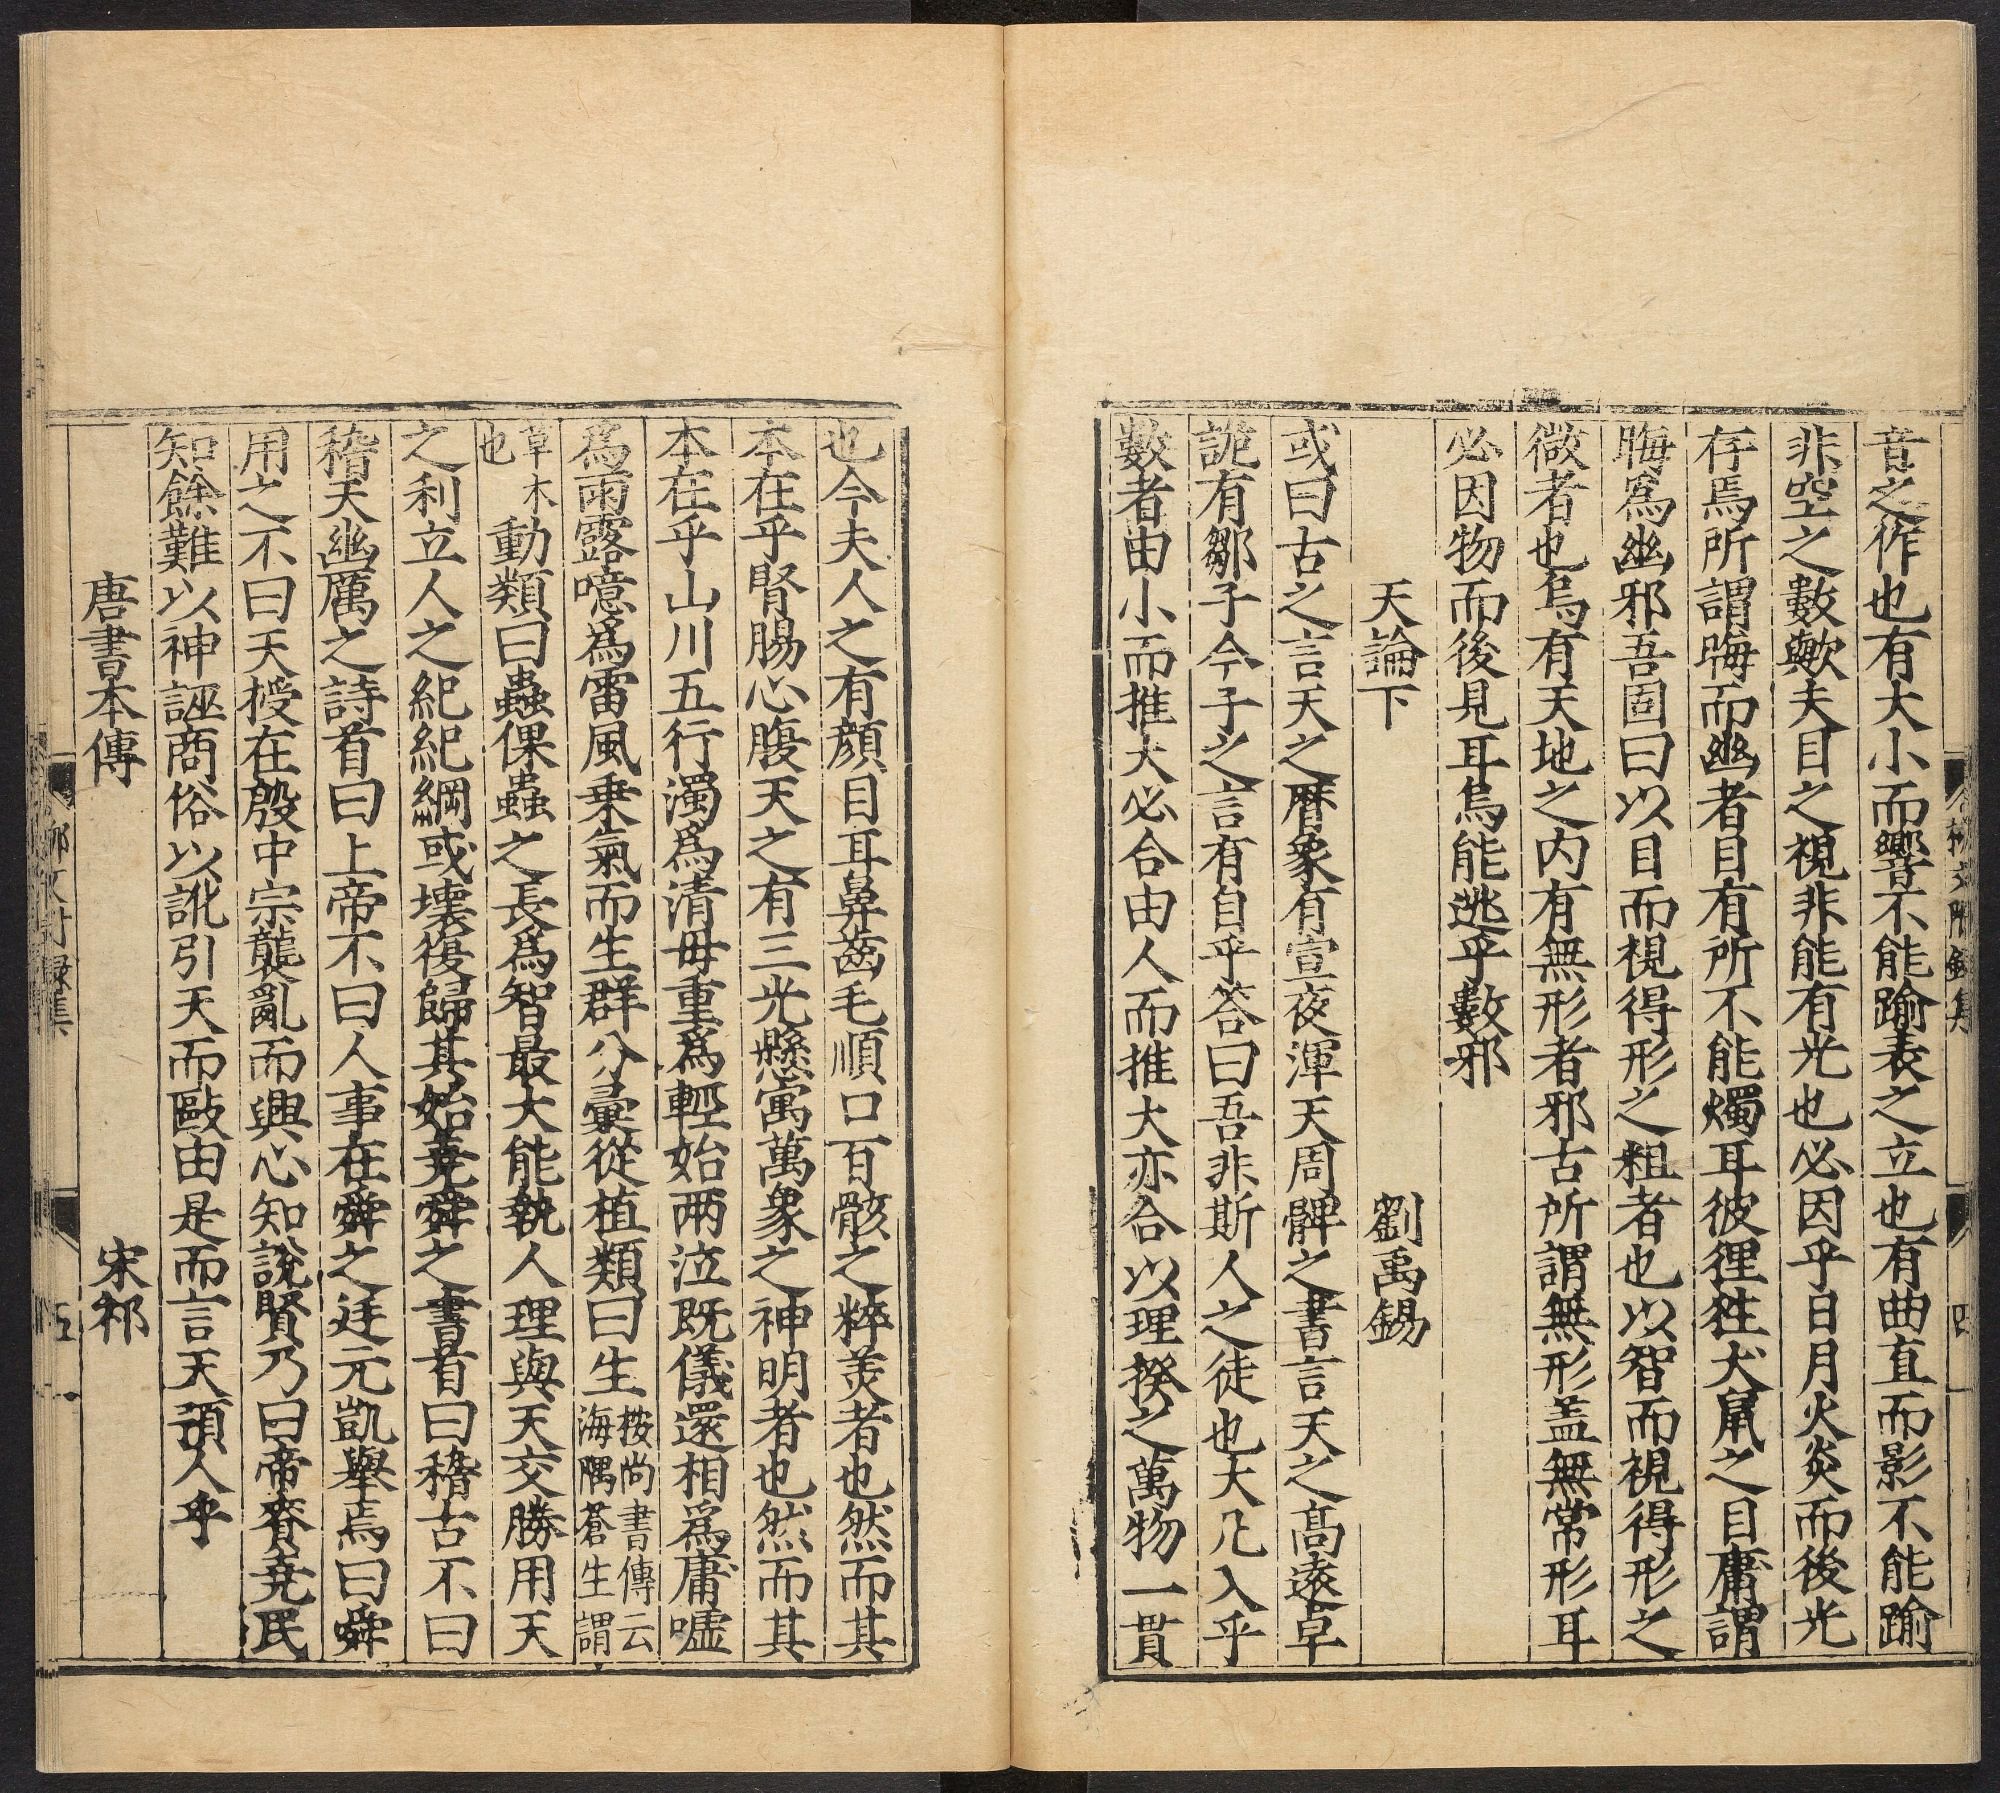 音之作也有大小而響不能踰表之立也有曲直而影不能踰
非空之數歟夫目之視非能有光也必因乎日月火炎而後光
存焉所謂晦而幽者目有所不能燭耳彼狸狌犬䑕之目庸謂
晦爲幽邪吾固曰以目而視得形之粗者也以智而視得形之
微者也烏有天地之内有無形者邪古所謂無形盖無常形耳
必因物而後見耳烏能逃乎數邪
天論下　劉禹錫
或曰古之言天之曆象有宣夜渾天周髀之書言天之高遠卓
詭有鄒子今子之言有自乎答曰吾非斯人之徒也大凡入乎
數者由小而推大必合由人而推大亦合以理揆之萬物一貫
也今夫人之有顏目耳鼻齒毛順口百骸之粹美者也然而其
本在乎腎腸心腹天之有三光懸寓萬象之神明者也然而其
本在乎山川五行濁爲清毋重爲輕始兩泣既儀還相爲庸噓
爲雨露噫爲雷風乗氣而生群分彙從植類曰生按尚書傳云海隅蒼生謂
草木也動類曰蟲倮蟲之長爲智最大能執人理與天交勝用天
之利立人之紀紀綱或壞復歸其始堯舜之書首曰稽古不曰
稽天幽厲之詩首曰上帝不曰人事在舜之廷元凱舉焉曰舜
用之不曰天授在殷中宗襲亂而興心知說賢乃曰帝賚堯民
知餘難以神誣商俗以訛引天而敺由是而言天預人乎
唐書本傳　宋祁